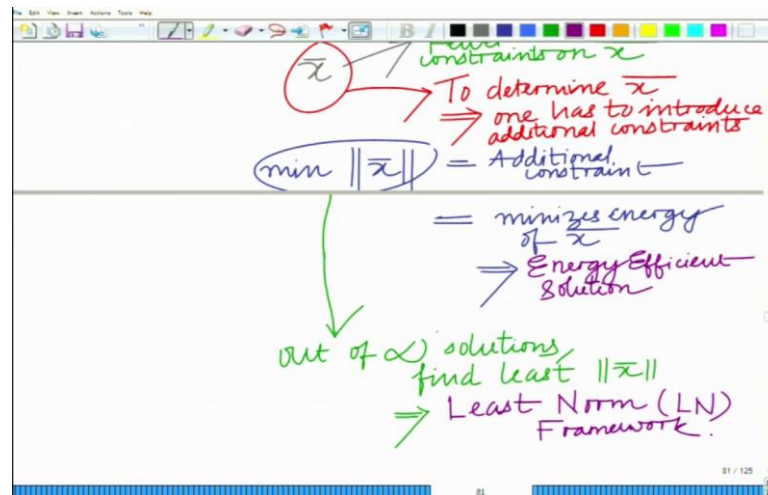 File Edit View Insert Actions Tools Help
B I
constraints on x
x̄
To determine x̄
⇒ one has to introduce
additional constraints
min ||x̄|| = Additional
constraint
= minimizes energy
of x̄
⇒ Energy Efficient
Solution
out of ∞ solutions,
find least ||x̄||
⇒ Least Norm (LN)
Framework.
81 / 125
81